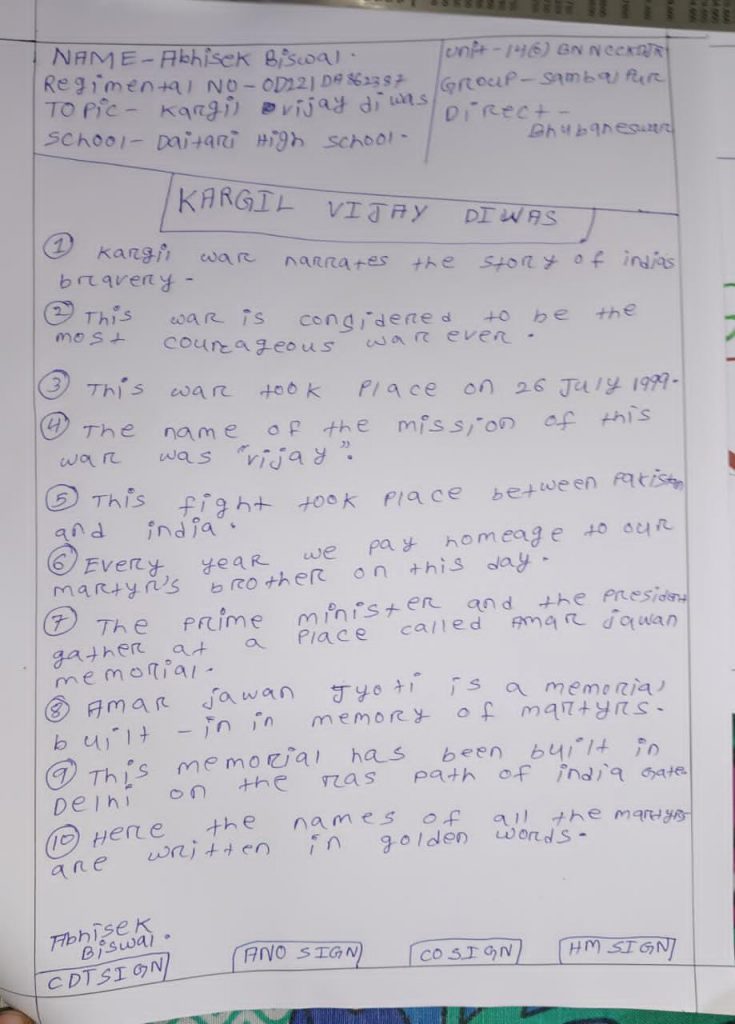 NAME - Abhisek Biswal.
Unit - 14(G) BN NCC
Regimental NO - OD221DA362337
GROUP - Sambalpur
TOPic - Kargil vijay diwas
DiRect - Bhubaneswar
School - Daitari High School.
KARGIL VIJAY DIWAS
① Kargil war narrates the story of india's
bravery -
② This war is considered to be the
most courageous war ever.
③ This war took Place on 26 July 1999.
④ The name of the mission of this
war was "vijay".
⑤ This fight took Place between Pakistan
and india.
⑥ Every year we pay homeage to our
martyr's brother on this day.
⑦ The Prime minister and the President
gather at a Place called Amar Jawan
memorial.
⑧ Amar Jawan Jyoti is a memorial
built - in in memory of martyrs.
⑨ This memorial has been built in
Delhi on the ras path of india Gate
⑩ Here the names of all the martyrs
are written in golden words.
Abhisek
Biswal.
CDT SIGN
ANO SIGN
CO SIGN
HM SIGN